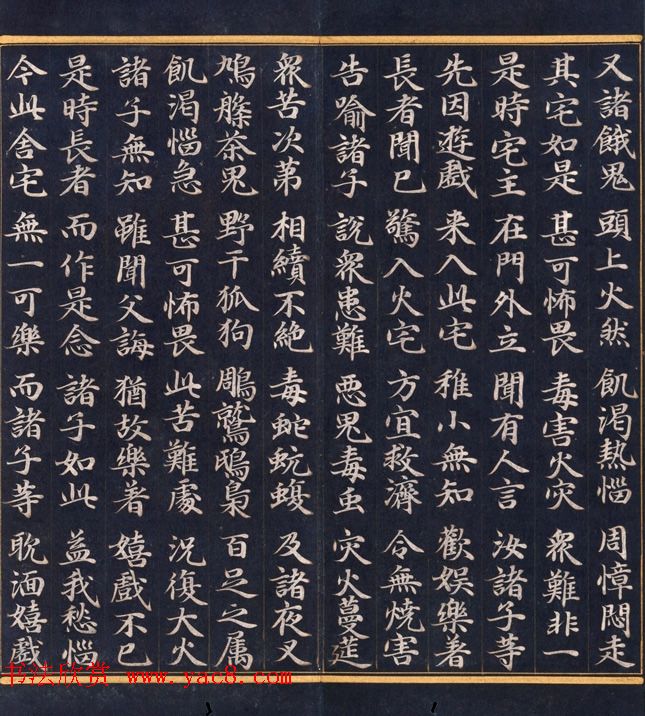 又諸餓鬼 頭上火然 飢渴熱惱 周慞悶走
其宅如是 甚可怖畏 毒害火灾 衆難非一
是時宅主 在門外立 聞有人言 汝諸子等
先因遊戲 来入此宅 稚小無知 歡娛樂著
長者聞已 驚入火宅 方宜救濟 令無燒害
告喻諸子 說衆患難 惡鬼毒虫 灾火蔓莚
衆苦次第 相續不絶 毒蛇蚖蝮 及諸夜叉
鳩槃荼鬼 野干狐狗 鵰鷲鵄梟 百足之属
飢渴惱急 甚可怖畏 此苦難處 況復大火
諸子無知 雖聞父誨 猶故樂著 嬉戲不已
是時長者 而作是念 諸子如此 益我愁惱
今此舍宅 無一可樂 而諸子等 耽湎嬉戲
书法欣赏 www.yac8.com